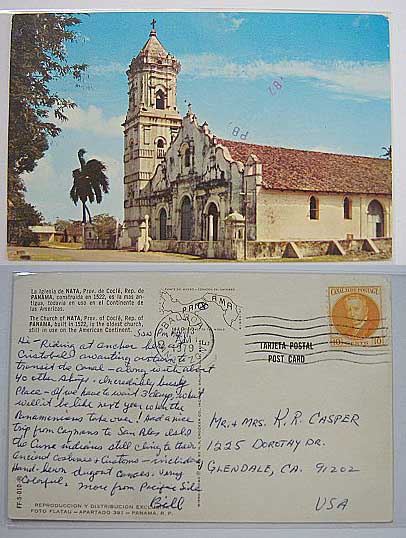 '82
P8
La Iglesia de NATA, Prov. de Coclé, Rep. de
PANAMA, construida en 1522, es la mas an-
tigua, todavia en uso en el Continente de
las Americas.
The Church of NATA, Prov. of Coclé, Rep. of
PANAMA, built in 1522, is the oldest church,
still in use on the American Continent.
PANAMA
BALBOA
MAR 13
AM
1979
CANAL ZONE POSTAGE
10 CENTS 10
TARJETA POSTAL
POST CARD
Hi - Riding at anchor behind
Cristobal awaiting our turn to
transit the canal - along with about
40 other ships. Incredibly busy
place - if we have to wait 3 days, what
will it be like next year when the
Panamanians take over! Had a nice
trip from Caymans to San Blas
the Cuna indians still cling to their
ancient costumes & customs - including
hand-sewn
Colorful. More from Pacific Side
Bill
Mr. & Mrs. K.R. CASPER
1225 DOROTHY DR.
GLENDALE, CA. 91202
USA
FF-5-010
REPRODUCCION Y DISTRIBUCION
FOTO FLATAU - APARTADO 391 - PANAMA, R. P.